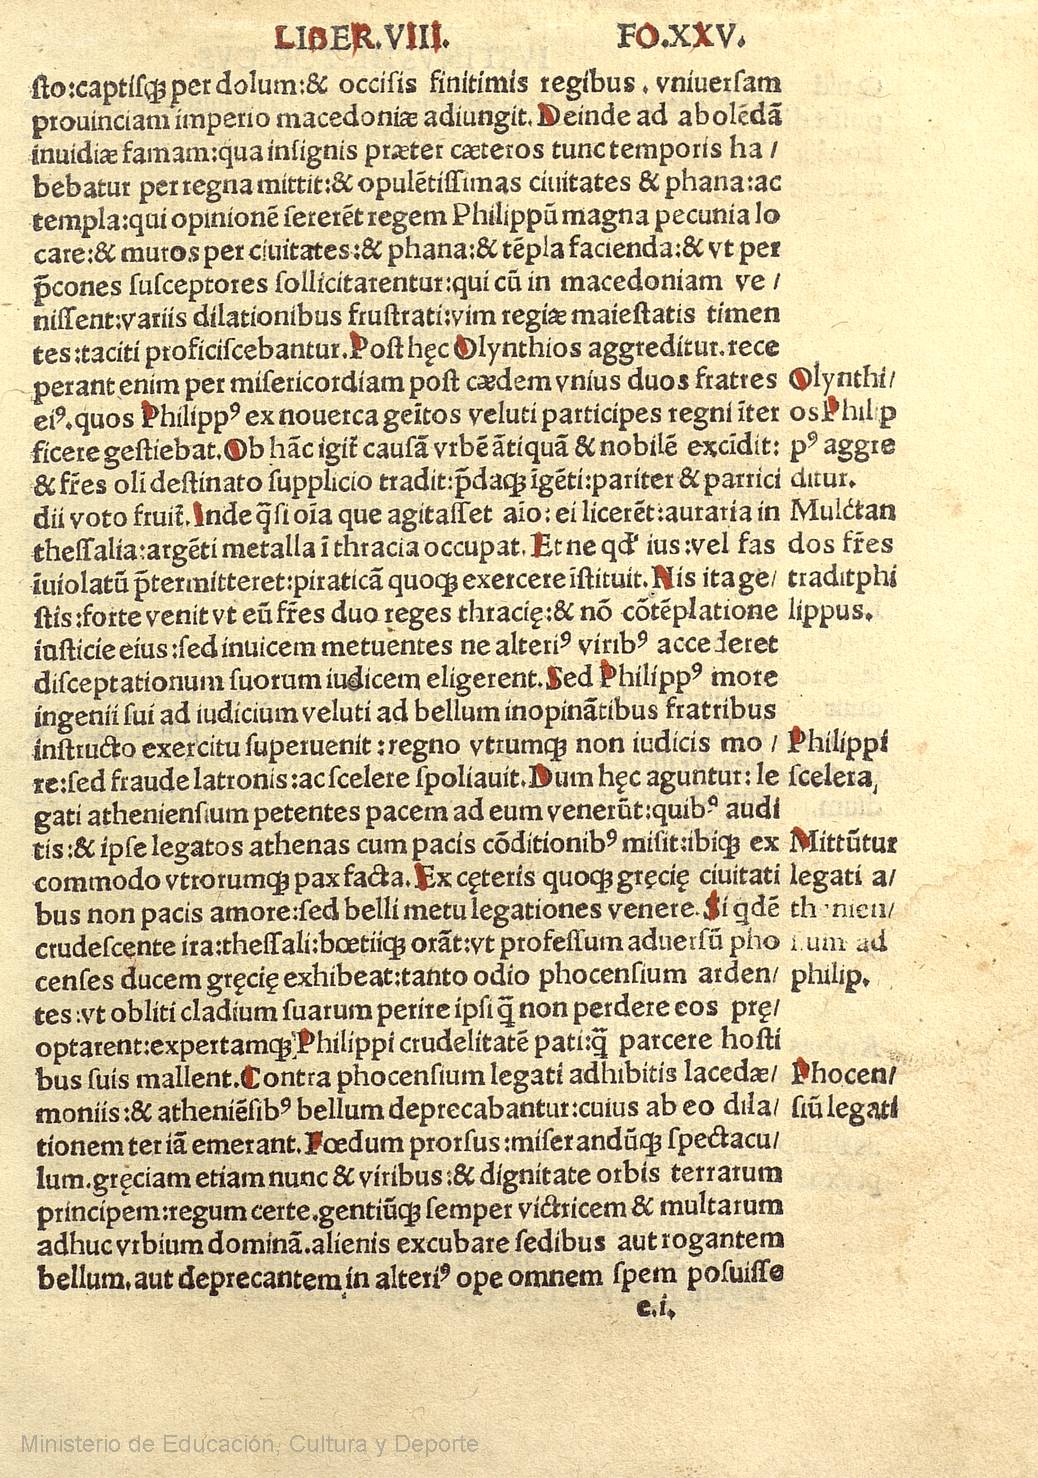 LIBER.VIII. FO.XXV.
ſto:captiſqȝ per dolum:& occiſis finitimis regibus . vniuerſam
prouinciam imperio macedoniæ adiungit. Deinde ad abolẽdã
inuidiæ famam:qua inſignis præter cæteros tunc temporis ha /
bebatur per regna mittit:& opulẽtiſſimas ciuitates & phana:ac
templa:qui opinionẽ ſererẽt regem Philippũ magna pecunia lo
care:& muros per ciuitates:& phana:& tẽpla facienda:& vt per
p̃cones ſuſceptores ſollicitarentur:qui cũ in macedoniam ve /
niſſent:variis dilationibus fruſtrati:vim regiæ maieſtatis timen
tes:taciti proficiſcebantur.Poſt hęc Olynthios aggreditur.rece
perant enim per miſericordiam poſt cædem vnius duos fratres
eiꝰ.quos Philippꝰ ex nouerca geĩtos veluti participes regni ĩter
ficere geſtiebat.Ob hãc igit̃ cauſã vrbẽ ãtiquã & nobilẽ excĩdit:
& fr̃es oli deſtinato ſupplicio tradit:p̃daqȝ ĩgẽti:pariter & parrici
dii voto fruit̃.Inde q̃ſi oĩa que agitaſſet aĩo: ei licerẽt:auraria in
theſſalia:argẽti metalla ĩ thracia occupat. Et ne qđ ius:vel fas
ĩuiolatũ p̃termitteret:piraticã quoqȝ exercere ĩſtituit.Nis ita ge/
ſtis:forte venit vt eũ fr̃es duo reges thracię:& nõ cõtẽplatione
iuſticie eius:ſed inuicem metuentes ne alteriꝰ viribꝰ accederet
diſceptationum ſuorum iudicem eligerent.Sed Philippꝰ more
ingenii ſui ad iudicium veluti ad bellum inopinãtibus fratribus
inſtructo exercitu ſuperuenit :regno vtrumqȝ non iudicis mo /
re:ſed fraude latronis:ac ſcelere ſpoliauit.Dum hęc aguntur: le
gati athenienſium petentes pacem ad eum venerũt:quibꝰ audi
tis:& ipſe legatos athenas cum pacis cõditionibꝰ miſit:ibiqȝ ex
commodo vtrorumqȝ pax facta.Ex cęteris quoqȝ gręcię ciuitati
bus non pacis amore:ſed belli metu legationes venere.Si qdẽ
crudeſcente ira:theſſali:bœtiiqȝ orãt:vt profeſſum aduerſũ pho
cenſes ducem gręcię exhibeat:tanto odio phocenſium arden/
tes:vt obliti cladium ſuarum perire ipſi q̃ non perdere eos prę/
optarent:expertamqȝ Philippi crudelitatẽ pati:q̃ parcere hoſti
bus ſuis mallent.Contra phocenſium legati adhibitis lacedæ/
moniis:& atheniẽſibꝰ bellum deprecabantur:cuius ab eo dila/
tionem ter iã emerant.Fœdum prorſus:miſerandũqȝ ſpectacu/
lum.gręciam etiam nunc & viribus:& dignitate orbis terrarum
principem:regum certe.gentiũqȝ ſemper victricem & multarum
adhuc vrbium dominã.alienis excubare ſedibus aut rogantem
bellum.aut deprecantem in alteriꝰ ope omnem ſpem poſuiſſe
e.i.
Olynthi/
os Philip
pꝰ aggre
ditur.
Mulctan
dos fr̃es
tradit phi
lippus.
Philippi
ſcelera
Mittũtur
legati a/
thenien/
ſium ad
philip.
Phocen/
ſiũ legati
Ministerio de Educación, Cultura y Deporte